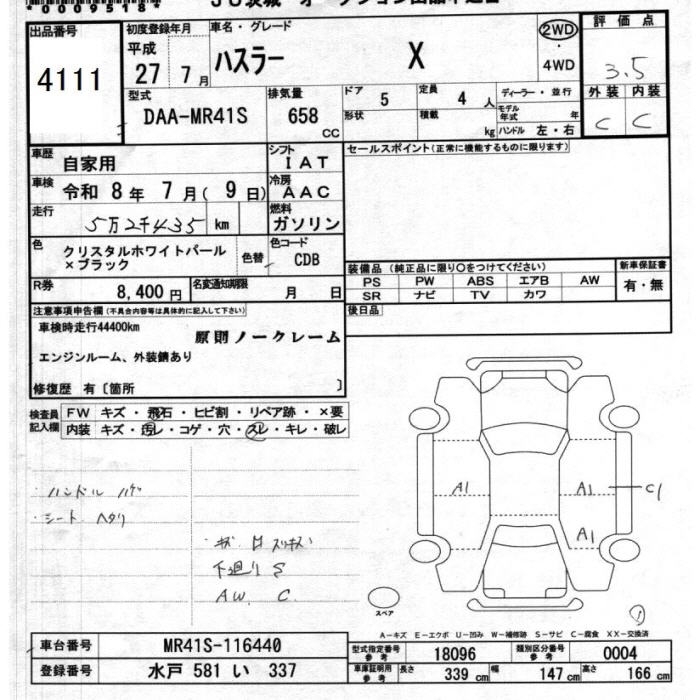 *00095184*
出品番号
4111
初度登録年月
平成
27 7月
車名・グレード
ハスラー X
2WD
・
4WD
評価点
3.5
外装 内装
C C
型式
DAA-MR41S
排気量
658
CC
ドア 5
形状
定員 4 人
積載 kg
ディーラー・並行
モデル年式 年
ハンドル 左・右
車歴 自家用
シフト IAT
車検 令和 8年 7月( 9日)
冷房 AAC
走行 5万2千435 km
燃料 ガソリン
色 クリスタルホワイトパール
×ブラック
色替
色コード CDB
R券 8,400円
名変通知期限 月 日
セールスポイント(正常に機能するものに限ります)
装備品 (純正品に限り○をつけてください)
PS PW ABS エアB AW
SR ナビ TV カワ
新車保証書
有・無
後日品
注意事項申告欄(不具合内容等は具体的に記入して下さい)
車検時走行44400km
原則ノークレーム
エンジンルーム、外装錆あり
修復歴 有〔箇所 〕
検査員記入欄
FW キズ・飛石・ヒビ割・リペア跡・×要
内装 キズ・汚レ・コゲ・穴・スレ・キレ・破レ
・ハンドル ハゲ
・シート ヘタリ
下廻り S
A.W. C.
A1 A1 C1
A1
スペア
①
A-キズ E-エクボ U-凹み W-補修跡 S-サビ C-腐食 XX-交換済
車台番号 MR41S-116440
登録番号 水戸 581 い 337
型式指定番号 参考 18096
類別区分番号 参考 0004
車庫証明用 参考 長さ 339 cm 幅 147 cm 高さ 166 cm